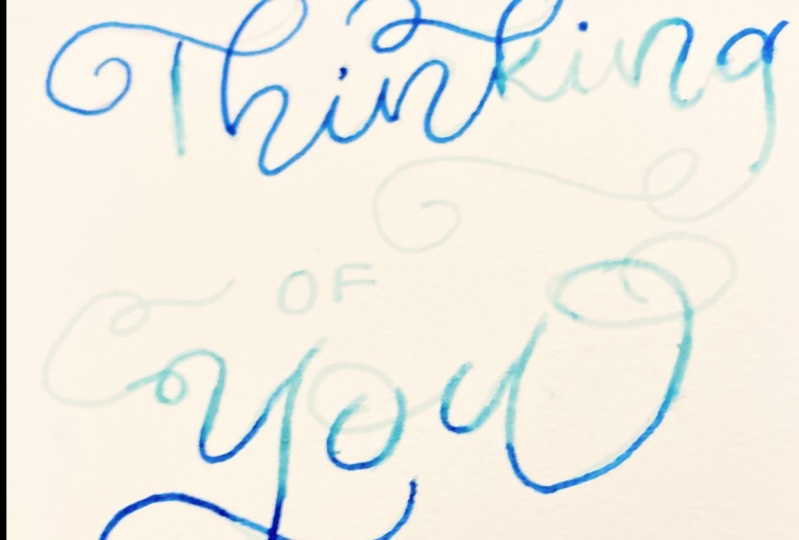 Thinking
OF
you